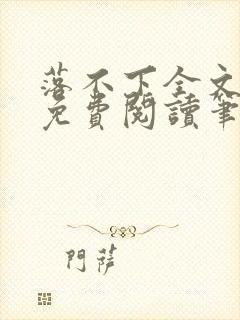 落不下全文
免費閱讀筆
門薩